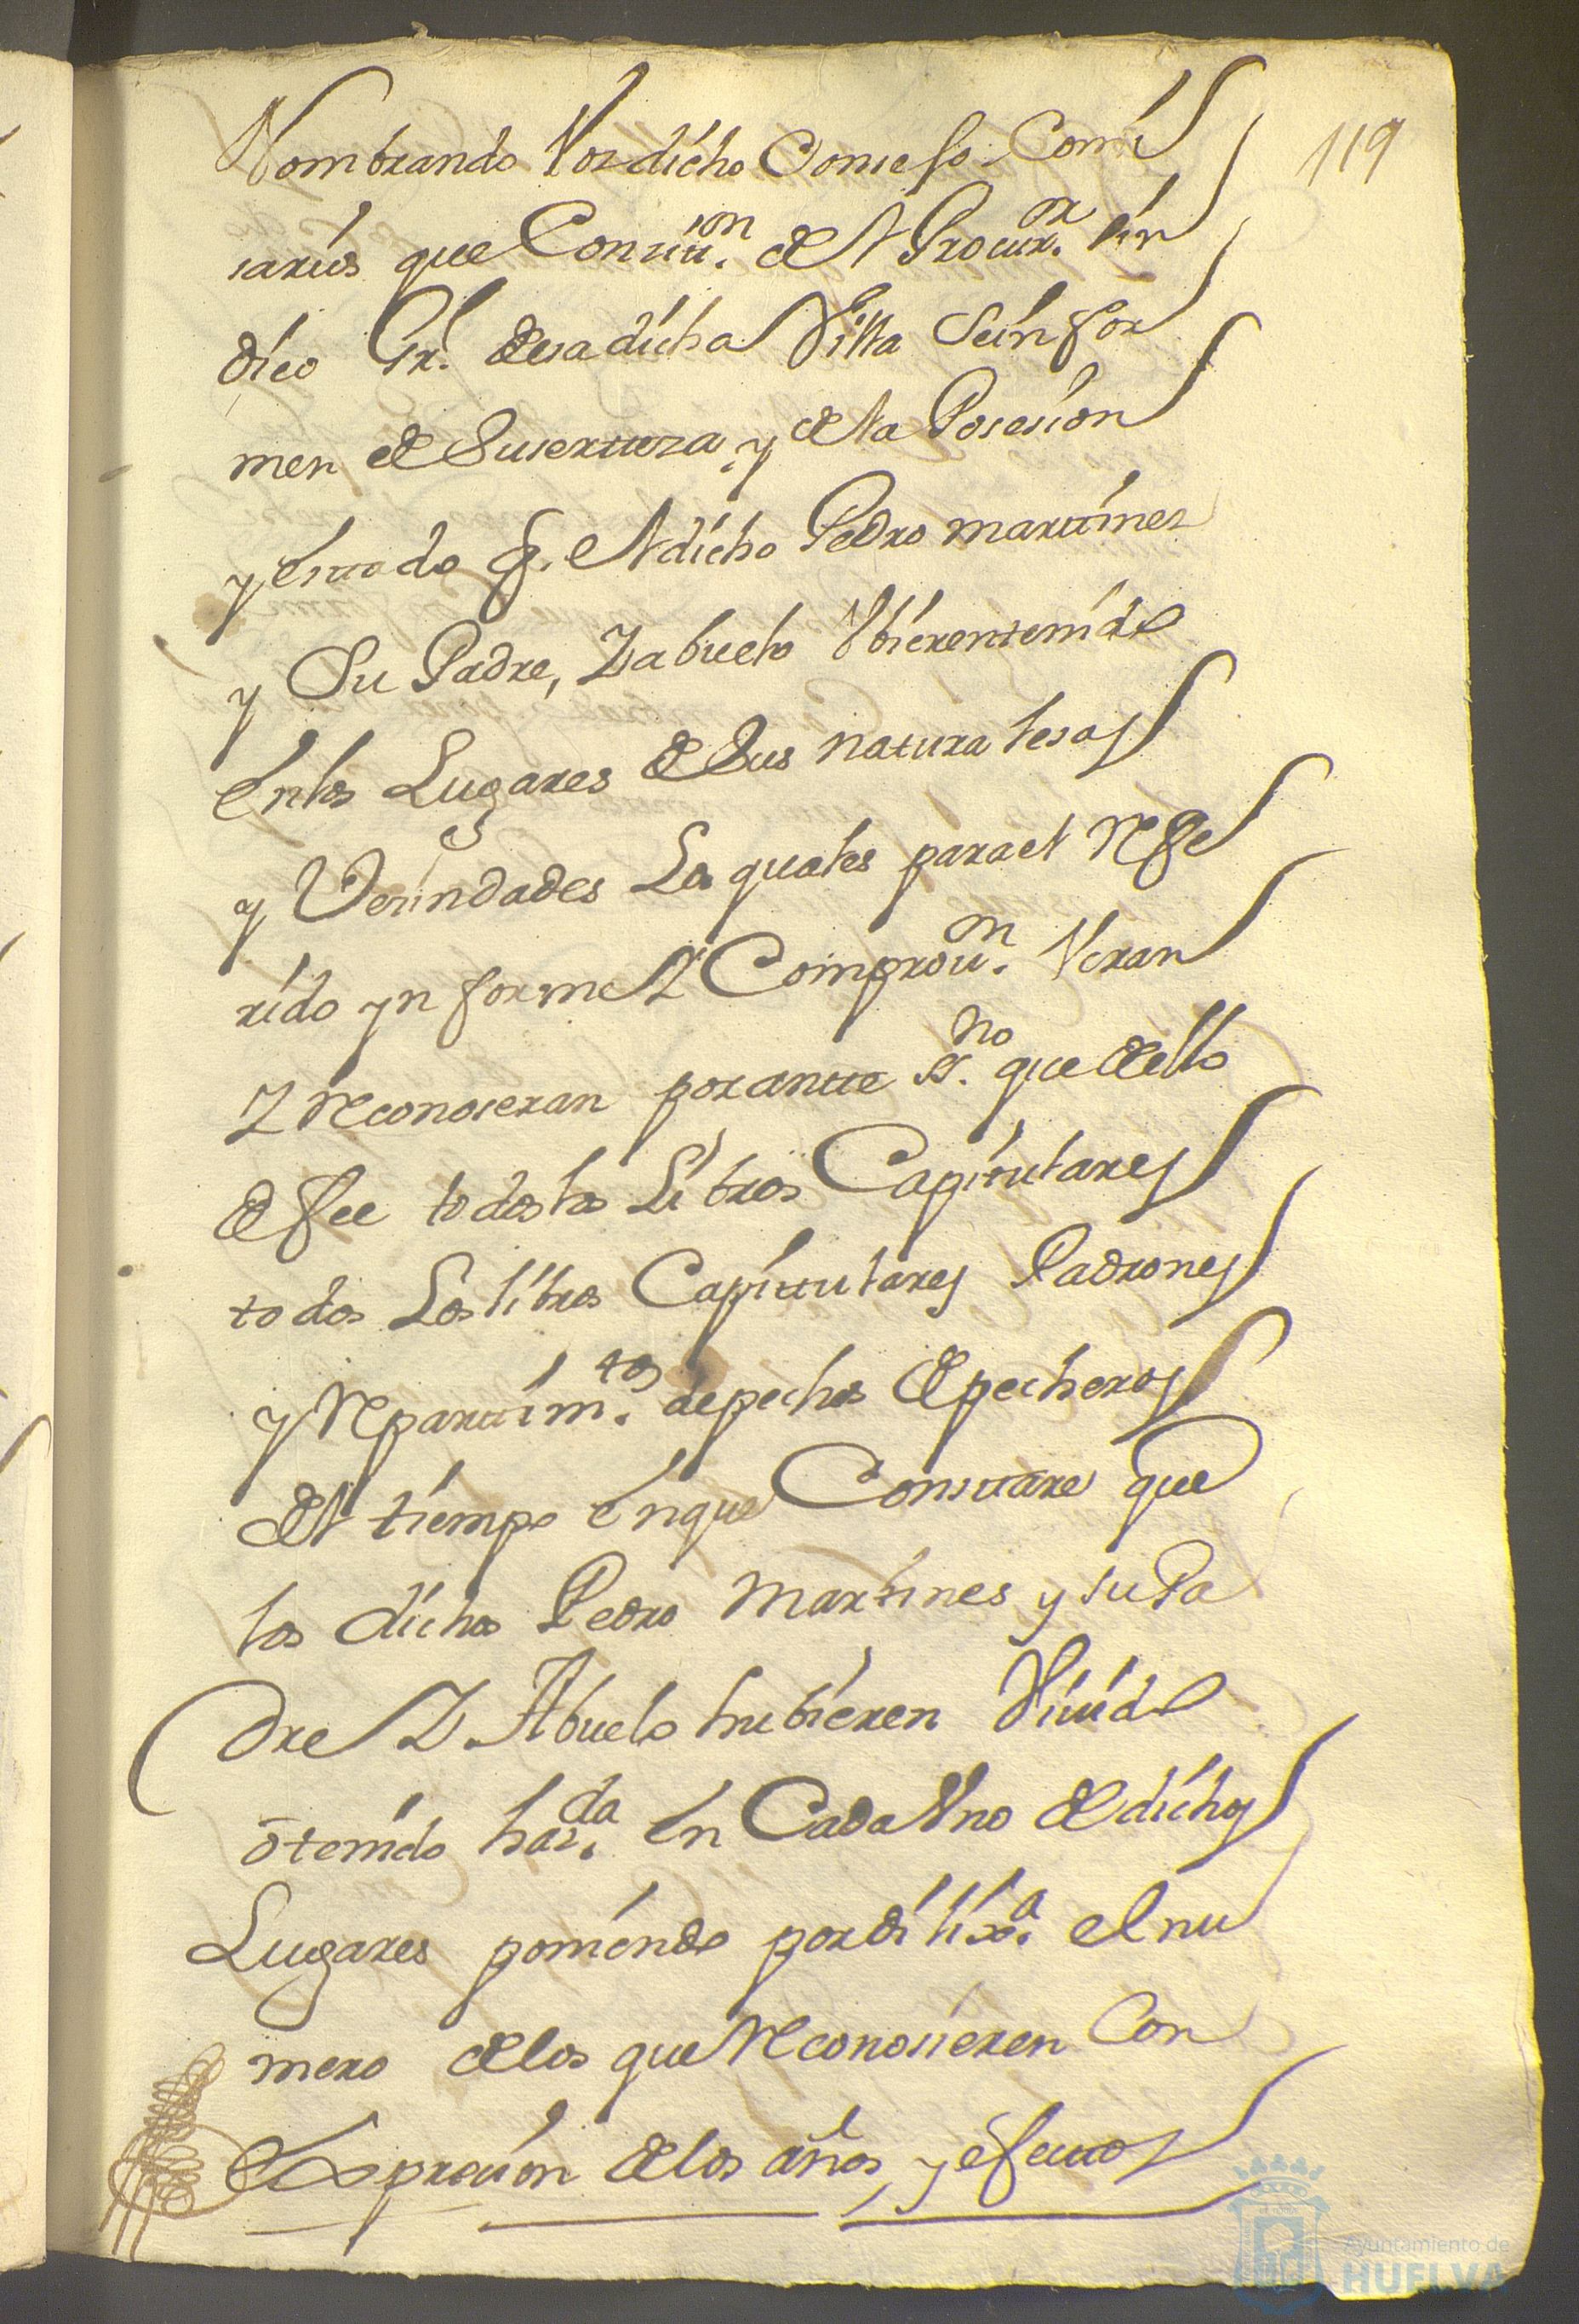 119
Nombrando Vos dicho Consejo Comi
sarios que Con sitt.on del Procur.or sin
dico Gr.l de esa dicha Villa Se ynfor
men de Su serttesa, y de la Posesion
y estado q. el dicho Pedro marttines
y Su Padre, Y abuelo Ubieren tenido
en los Lugares de Sus naturalesas
y Vesindades Los quales para el Refe
rido ynforme Y Comprov.on Veran
Y Reconoseran por antte ss.no que de ello
de fee todos los Libros Capitulares
todos Los libros Capittulares Padrones
y Reparttim.tos de pechos de pecheros
del tiempo en que Consttare que
los dichos Pedro Martines y su Pa
dre Y Abuelo hubieren Vivido
o tenido haz.da en Cada Uno de dichos
Lugares poniendo por dilix.a el nu
mero de los que Reconosieren Con
Expresion de los años, y efectos
Ayuntamiento de
HUELVA